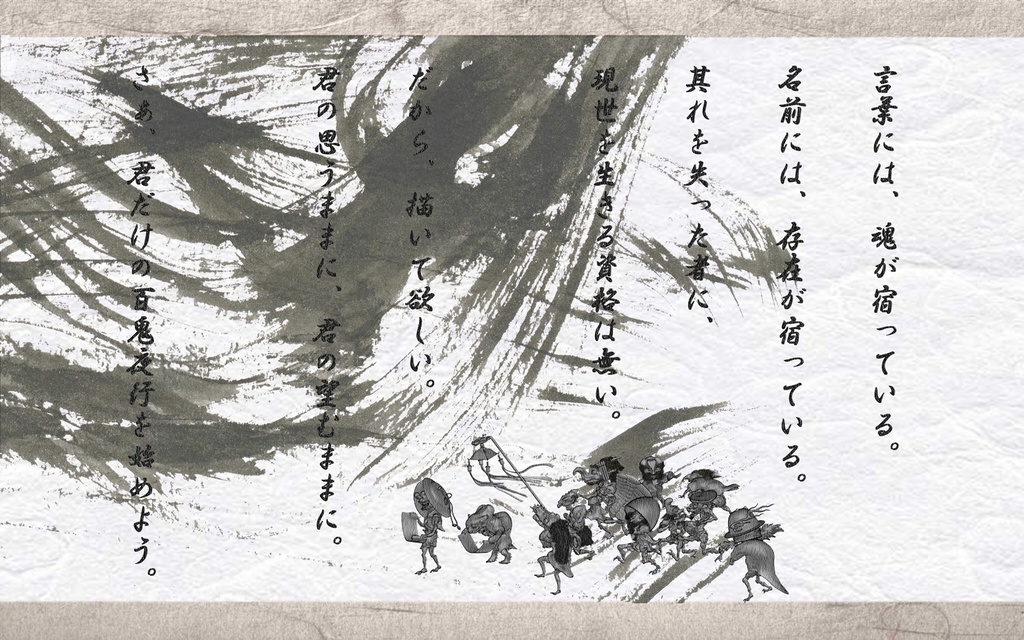 言葉には、魂が宿っている。
名前には、存在が宿っている。
其れを失った者に、
現世を生きる資格は無い。
だから、描いて欲しい。
君の思うままに、君の望むままに。
さぁ、君だけの百鬼夜行を始めよう。